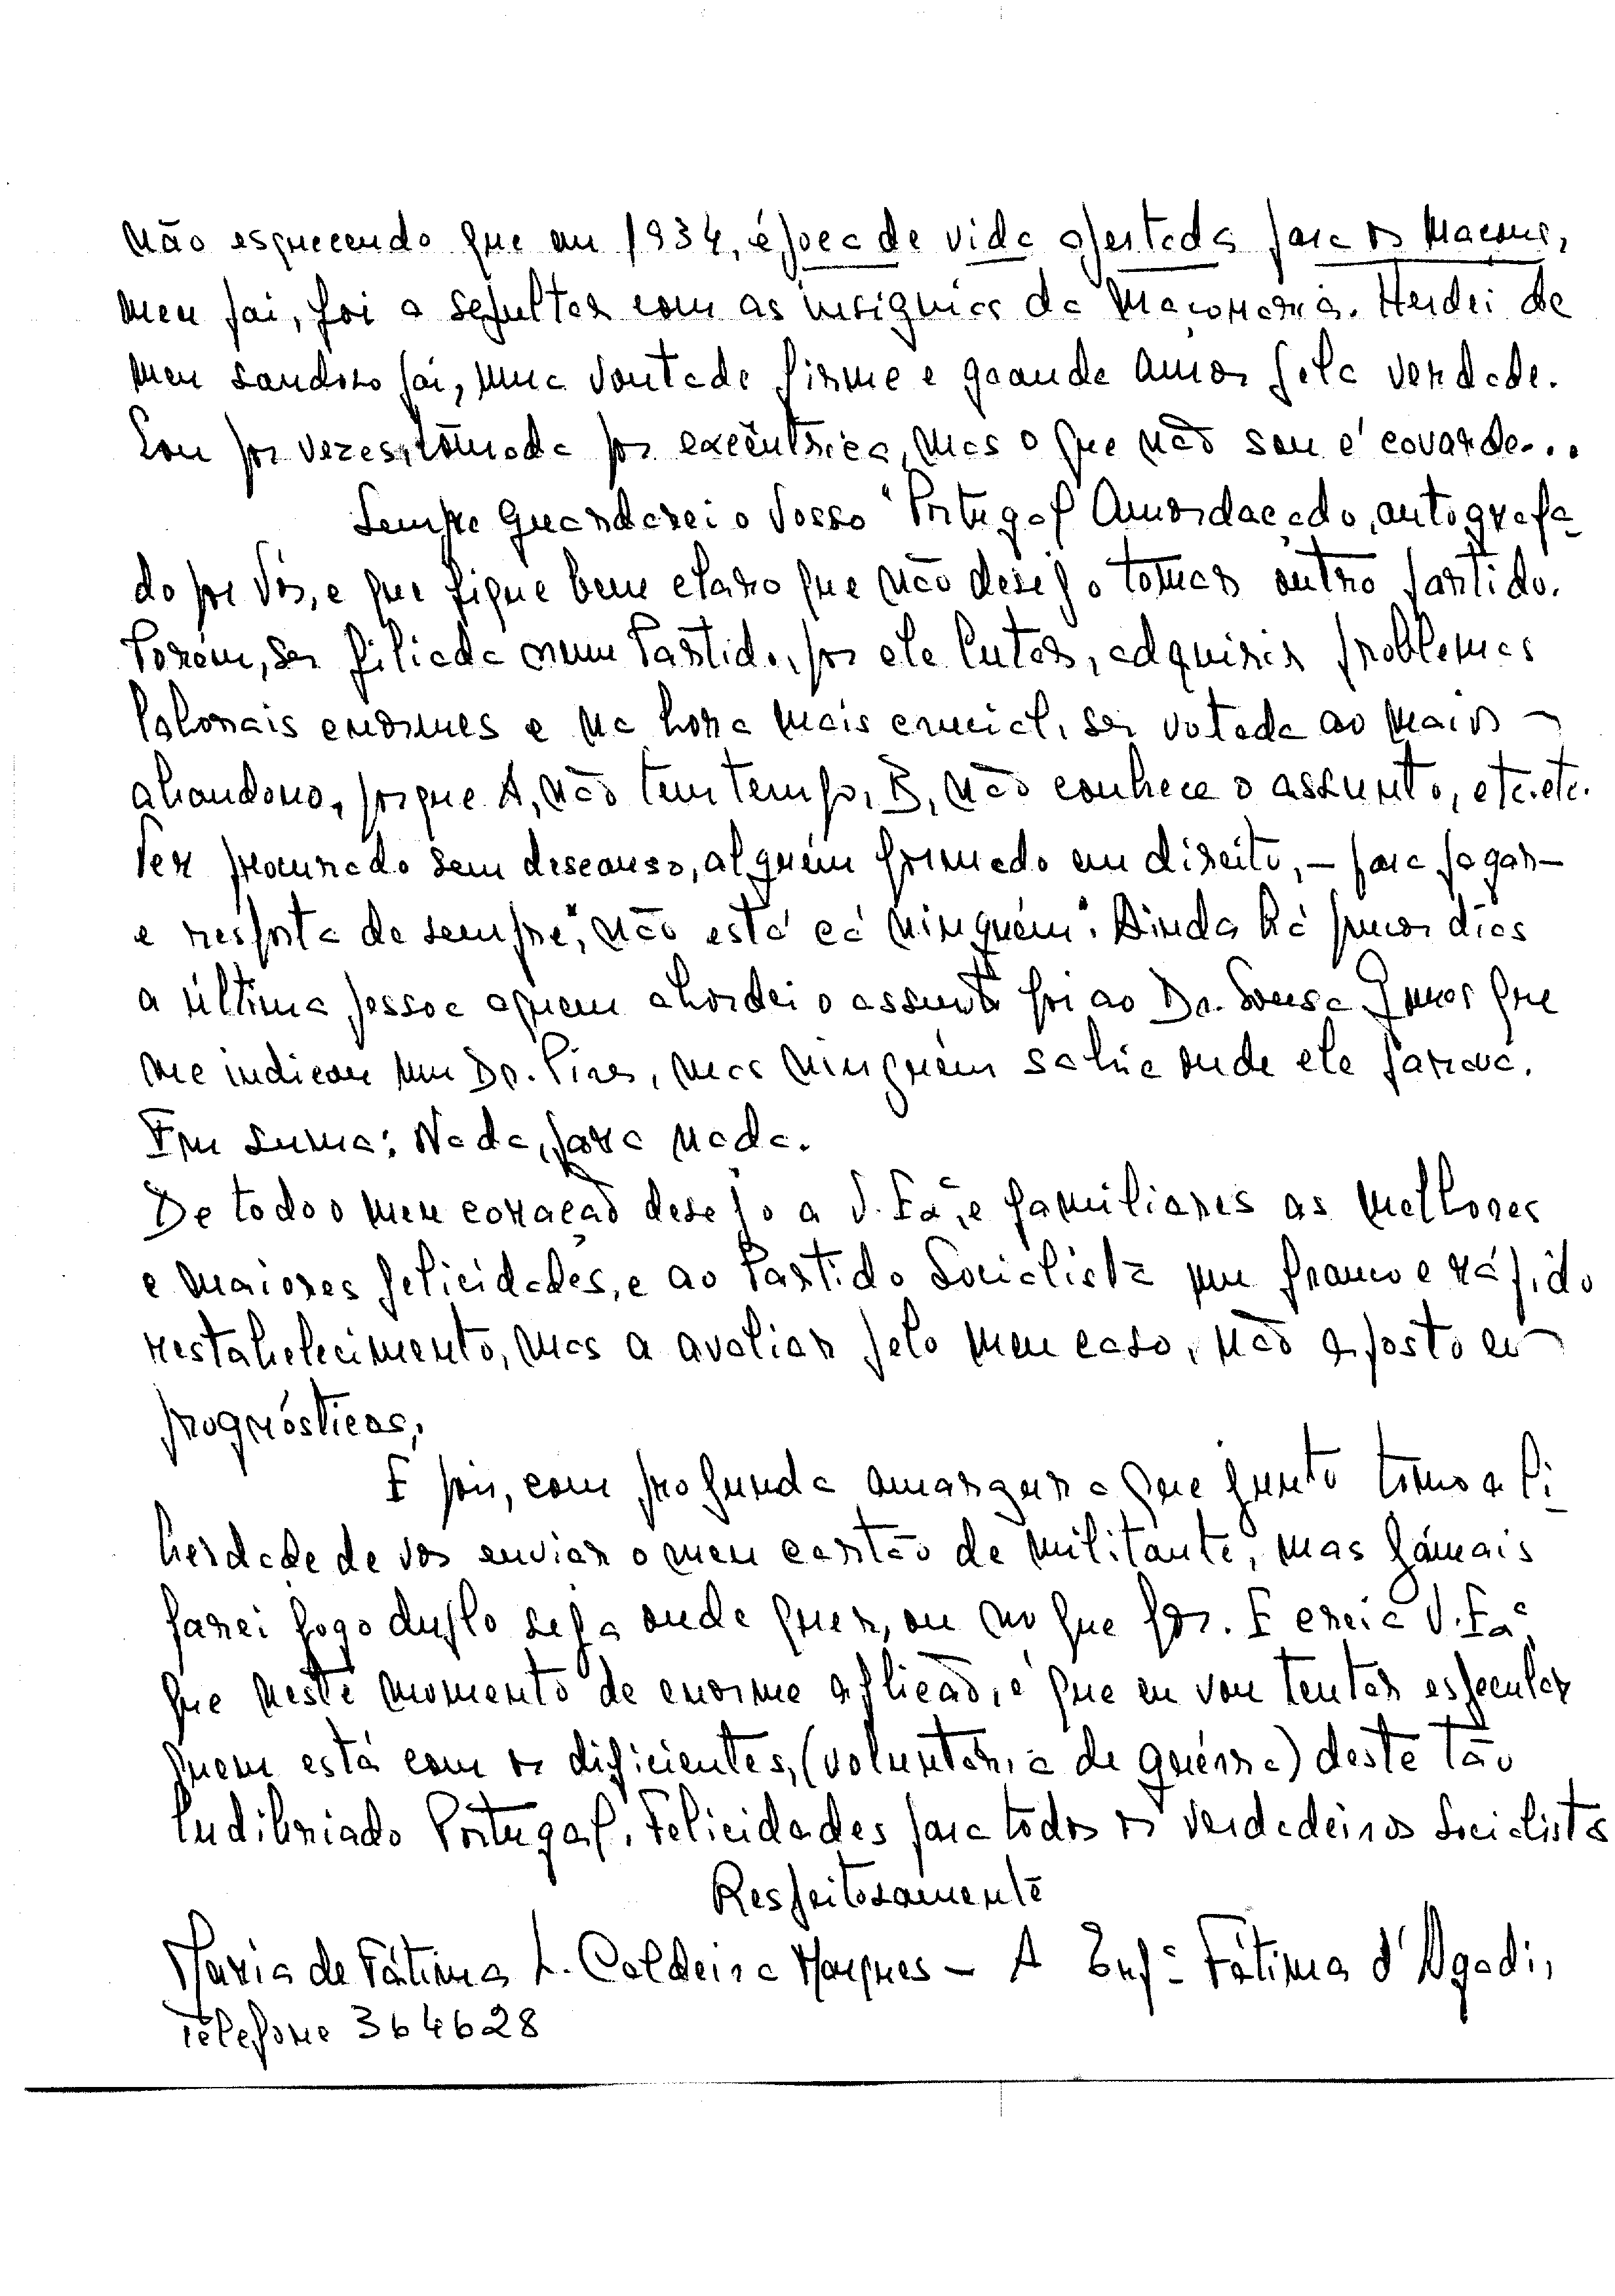 não esquecendo que em 1934, época de vida apertada para os Maçons,
meu pai, foi a sepultar com as insignias da Maçonaria. Herdei de
meu saudoso pai, uma vontade firme e grande amor pela verdade.
Sou por vezes, tomada por excêntrica, mas o que não sou é covarde...
Sempre guardarei o Vosso "Portugal Amordaçado, autografa-
do por Vós, e que fique bem claro que não desejo tomar outro partido.
Porém, ser filiada num Partido, por ele lutar, adquirir problemas
laborais enormes e na hora mais crucial, ser votada ao maior
abandono, porque A, não tem tempo, B, não conhece o assunto, etc. etc.
Ter procurado sem descanso, alguém formado em direito, - para pagar -
e resposta de sempre, "não está cá ninguém". Ainda há poucos dias
a última pessoa a quem abordei o assunto foi ao Dr. Sousa que
me indicou um Dr. Pires, mas ninguém sabia onde ele parava.
Em suma: Nada, para nada.
De todo o meu coração desejo a V. Exª, e familiares as melhores
e maiores felicidades, e ao Partido Socialista um franco e rápido
restabelecimento, mas a avaliar pelo meu caso, não aposto em
prognósticos,
E pois, com profunda amargura que junto tomo a li-
berdade de vos enviar o meu cartão de militante, mas jámais
farei jogo duplo seja onde quer, ou no que for. E creia V. Exª,
que neste momento de enorme aflição, é que eu vou tentar especular
quem está com os dificientes, (voluntária de guérra) deste tão
ludibriado Portugal. Felicidades para todos os verdadeiros Socialistas
Respeitosamente
Maria de Fátima L. Caldeira Marques - A Enfª Fátima d'Agadi,
Telefone 364628